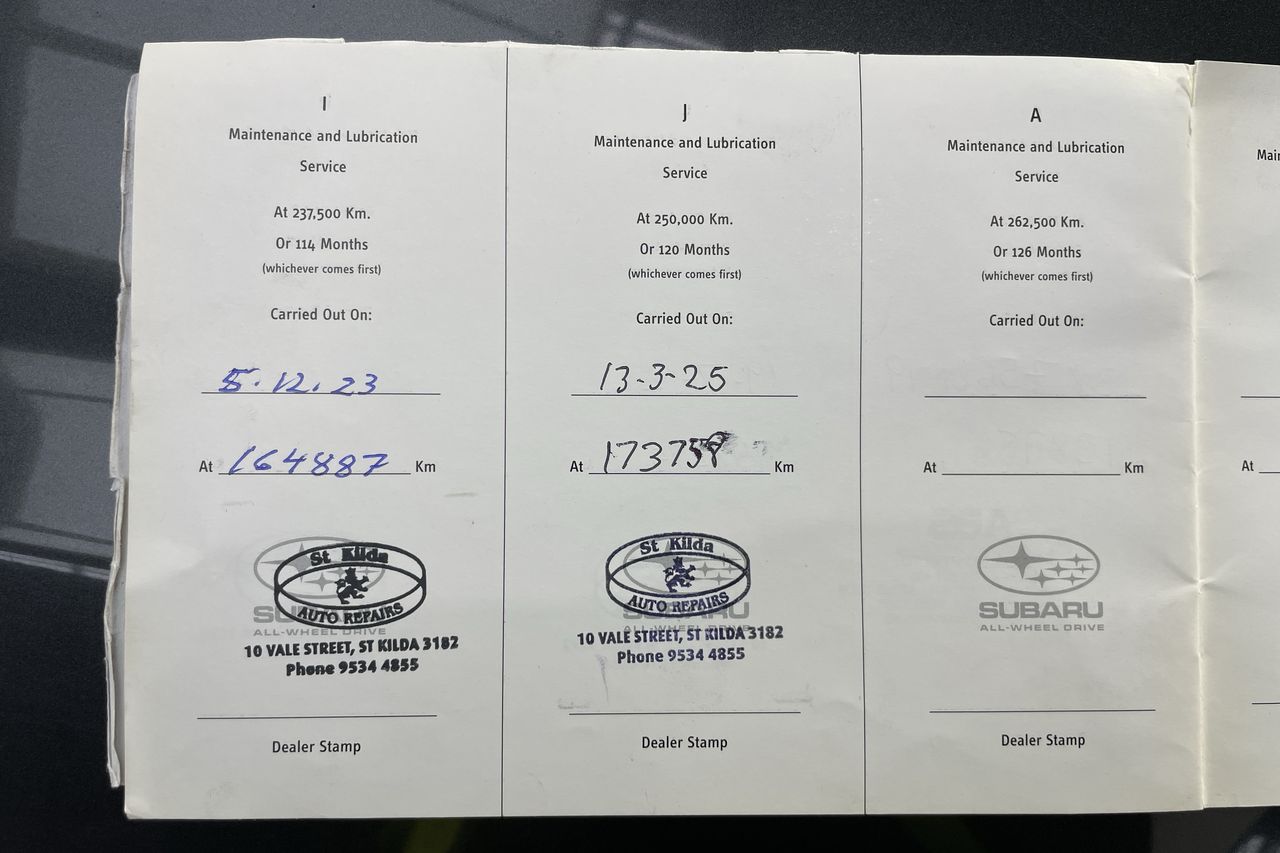 I
Maintenance and Lubrication
Service
At 237,500 Km.
Or 114 Months
(whichever comes first)
Carried Out On:
5.12.23
At 164887 Km
St Kilda
AUTO REPAIRS
SUBARU
ALL-WHEEL DRIVE
10 VALE STREET, ST KILDA 3182
Phone 9534 4855
Dealer Stamp
J
Maintenance and Lubrication
Service
At 250,000 Km.
Or 120 Months
(whichever comes first)
Carried Out On:
13-3-25
At Km
St Kilda
AUTO REPAIRS
SUBARU
ALL-WHEEL DRIVE
10 VALE STREET, ST KILDA 3182
Phone 9534 4855
Dealer Stamp
A
Maintenance and Lubrication
Service
At 262,500 Km.
Or 126 Months
(whichever comes first)
Carried Out On:
At Km
SUBARU
ALL-WHEEL DRIVE
Dealer Stamp
At